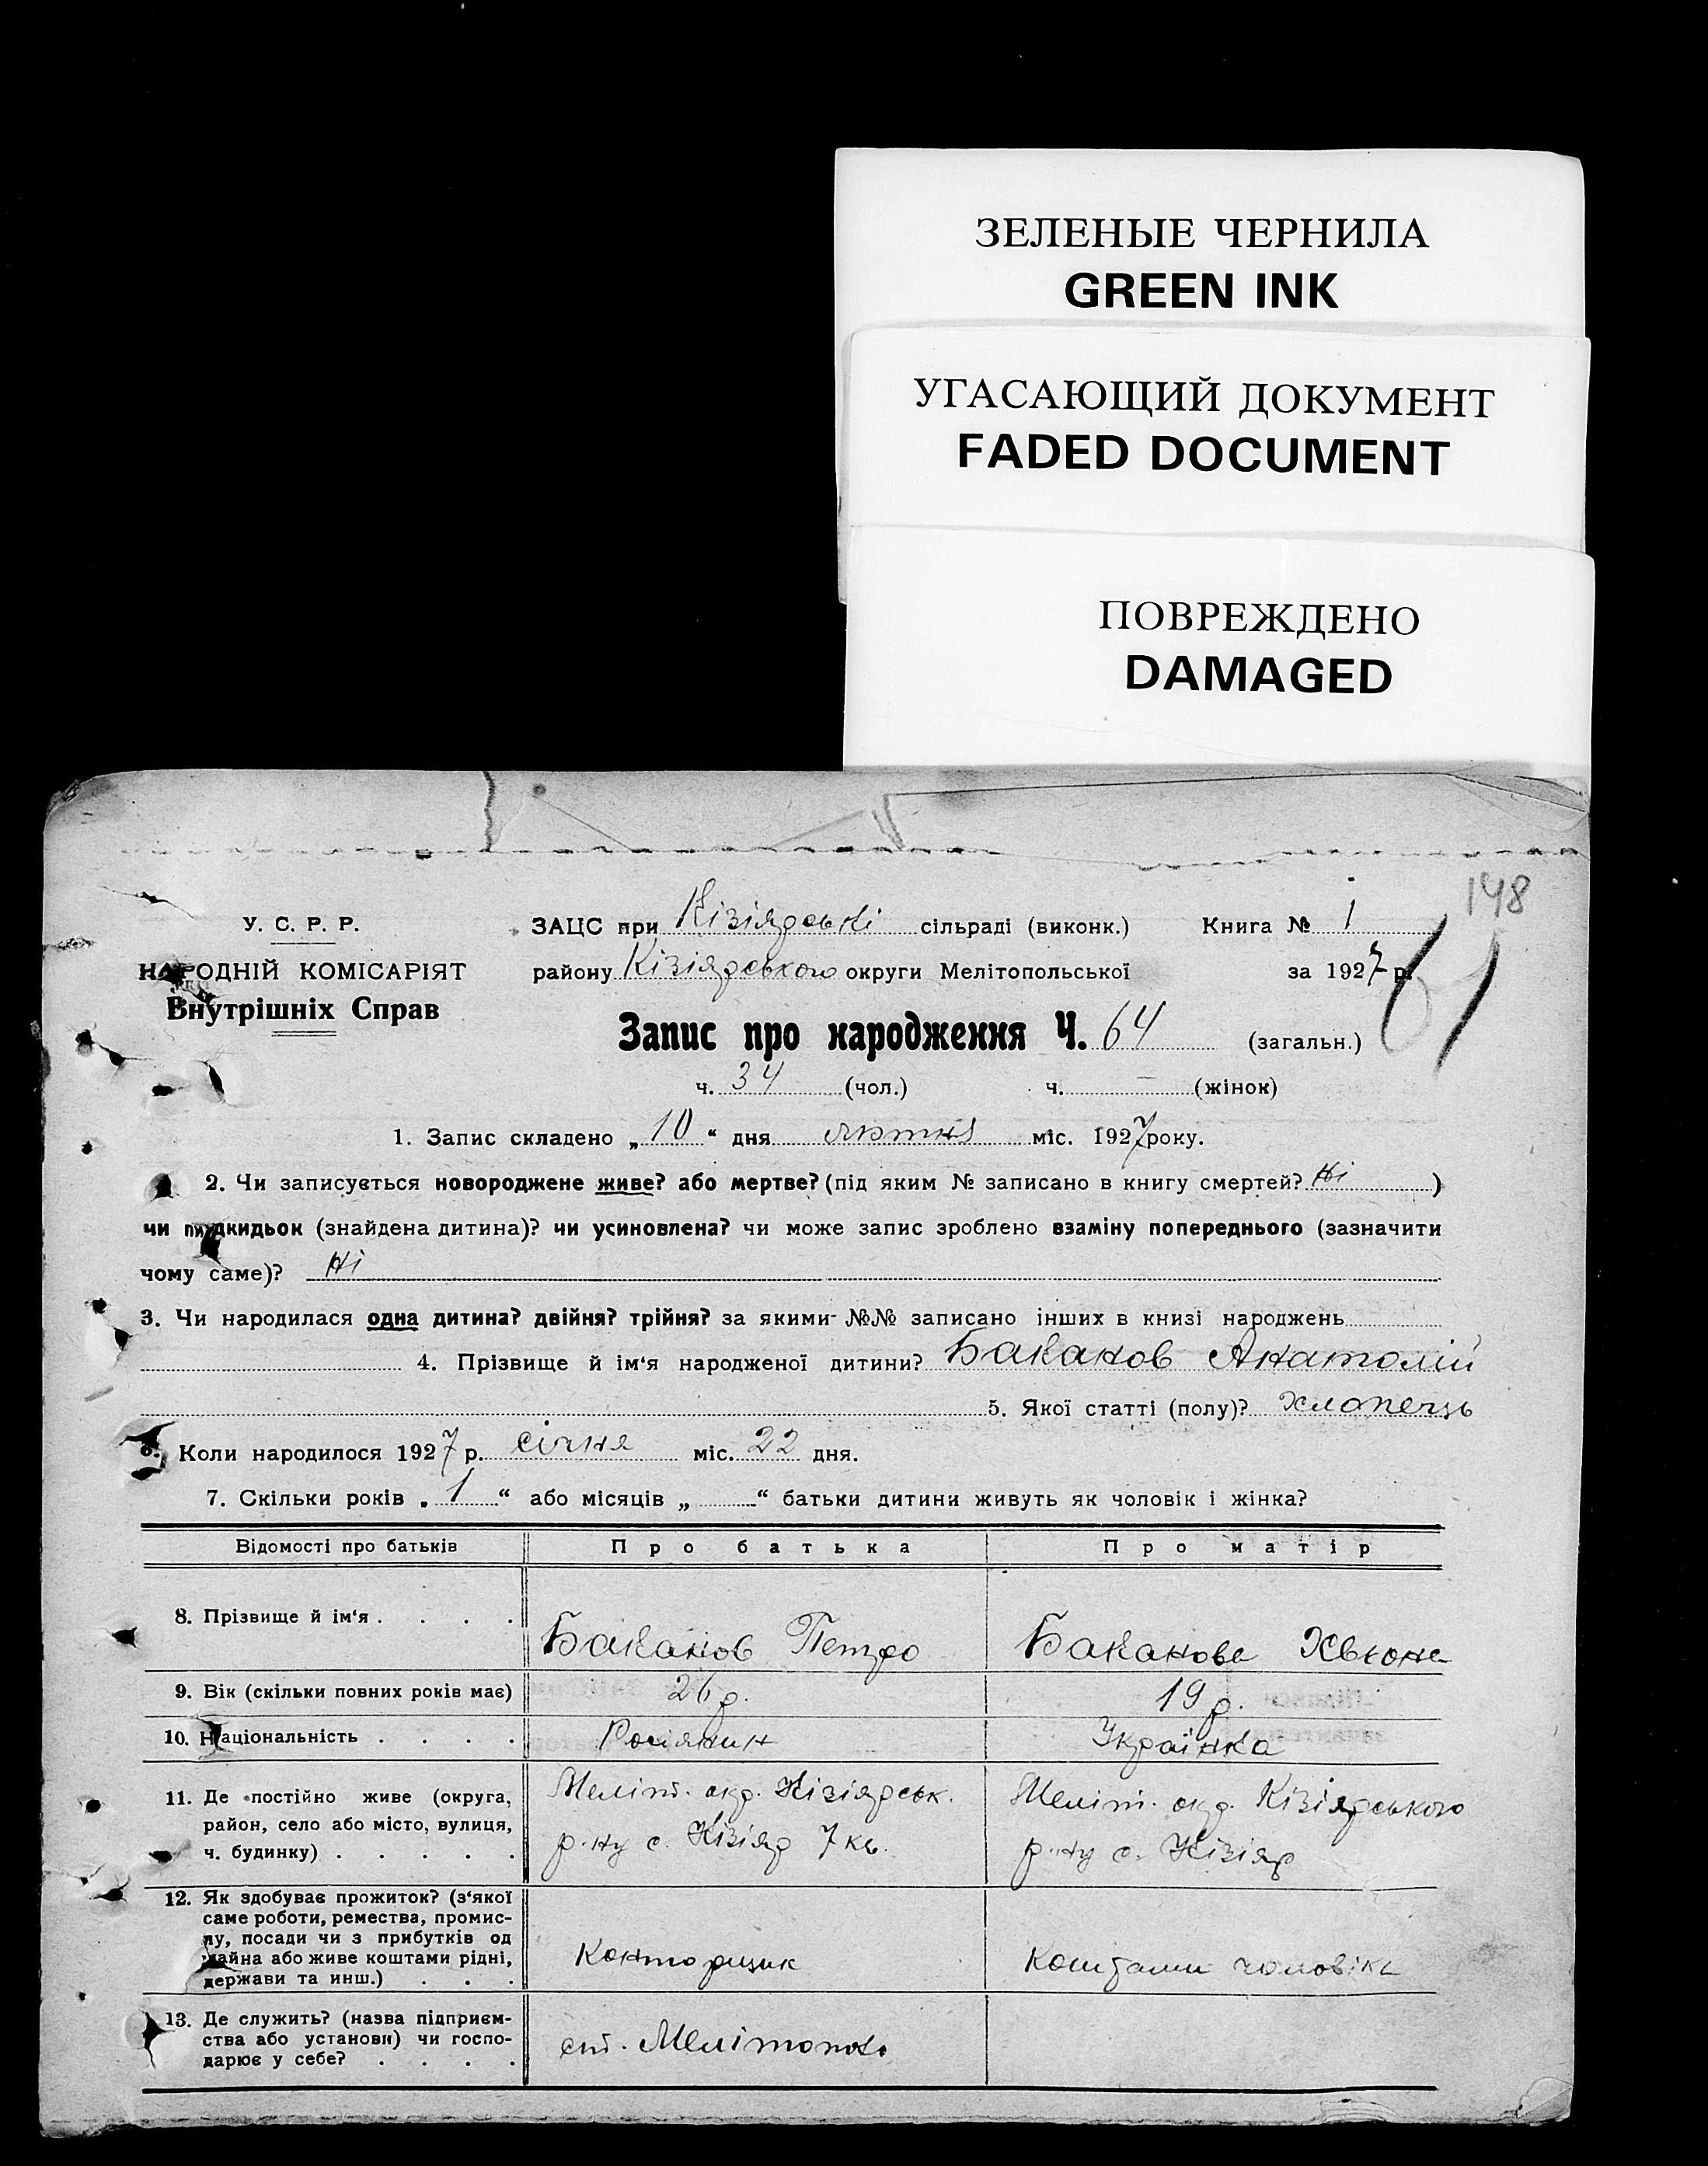 ЗЕЛЕНЫЕ ЧЕРНИЛА
GREEN INK
УГАСАЮЩИЙ ДОКУМЕНТ
FADED DOCUMENT
ПОВРЕЖДЕНО
DAMAGED
148
У. С. Р. Р.
НАРОДНІЙ КОМІСАРІЯТ
Внутрішніх Справ
ЗАЦС при Кізіярські сільраді (виконк.) Книга № 1
району Кізіярського округи Мелітопольської за 1927 р.
Запис про народження Ч. 64 (загальн.)
ч. 34 (чол.) ч. — (жінок)
1. Запис складено „ 10 “ дня лютня міс. 1927 року.
2. Чи записується новороджене живе? або мертве? (під яким № записано в книгу смертей? Ні )
чи підкидьок (знайдена дитина)? чи усиновлена? чи може запис зроблено взаміну попереднього (зазначити
чому саме)? Ні
3. Чи народилася одна дитина? двійня? трійня? за якими №№ записано інших в книзі народжень
4. Прізвище й ім‘я народженої дитини? Баканов Анатолій
5. Якої статті (полу)? Хлопець
6. Коли народилося 1927 р. січня міс. 22 дня.
7. Скільки років „ 1 “ або місяців „ “ батьки дитини живуть як чоловік і жінка?
Відомості про батьків Про батька Про матір
8. Прізвище й ім‘я . . . . Баканов Петро Баканова Хвьона
9. Вік (скільки повних років має) 26 р. 19 р.
10. Національність . . . . Росіянин Українка
11. Де постійно живе (округа, район, село або місто, вулиця, ч. будинку) . . . . .
Меліт. окр. Кізіярськ.
р-ну с. Кізіяр 7 кв.
Меліт. окр. Кізіярського
р-ну с. Кізіяр
12. Як здобуває прожиток? (з‘якої
саме роботи, ремества, промис-
лу, посади чи з прибутків од
майна або живе коштами рідні,
держави та инш.) . . .
Конторщик Коштами чоловіка
13. Де служить? (назва підприєм-
ства або установи) чи госпо-
дарює у себе? . . . .
ст. Мелітополь